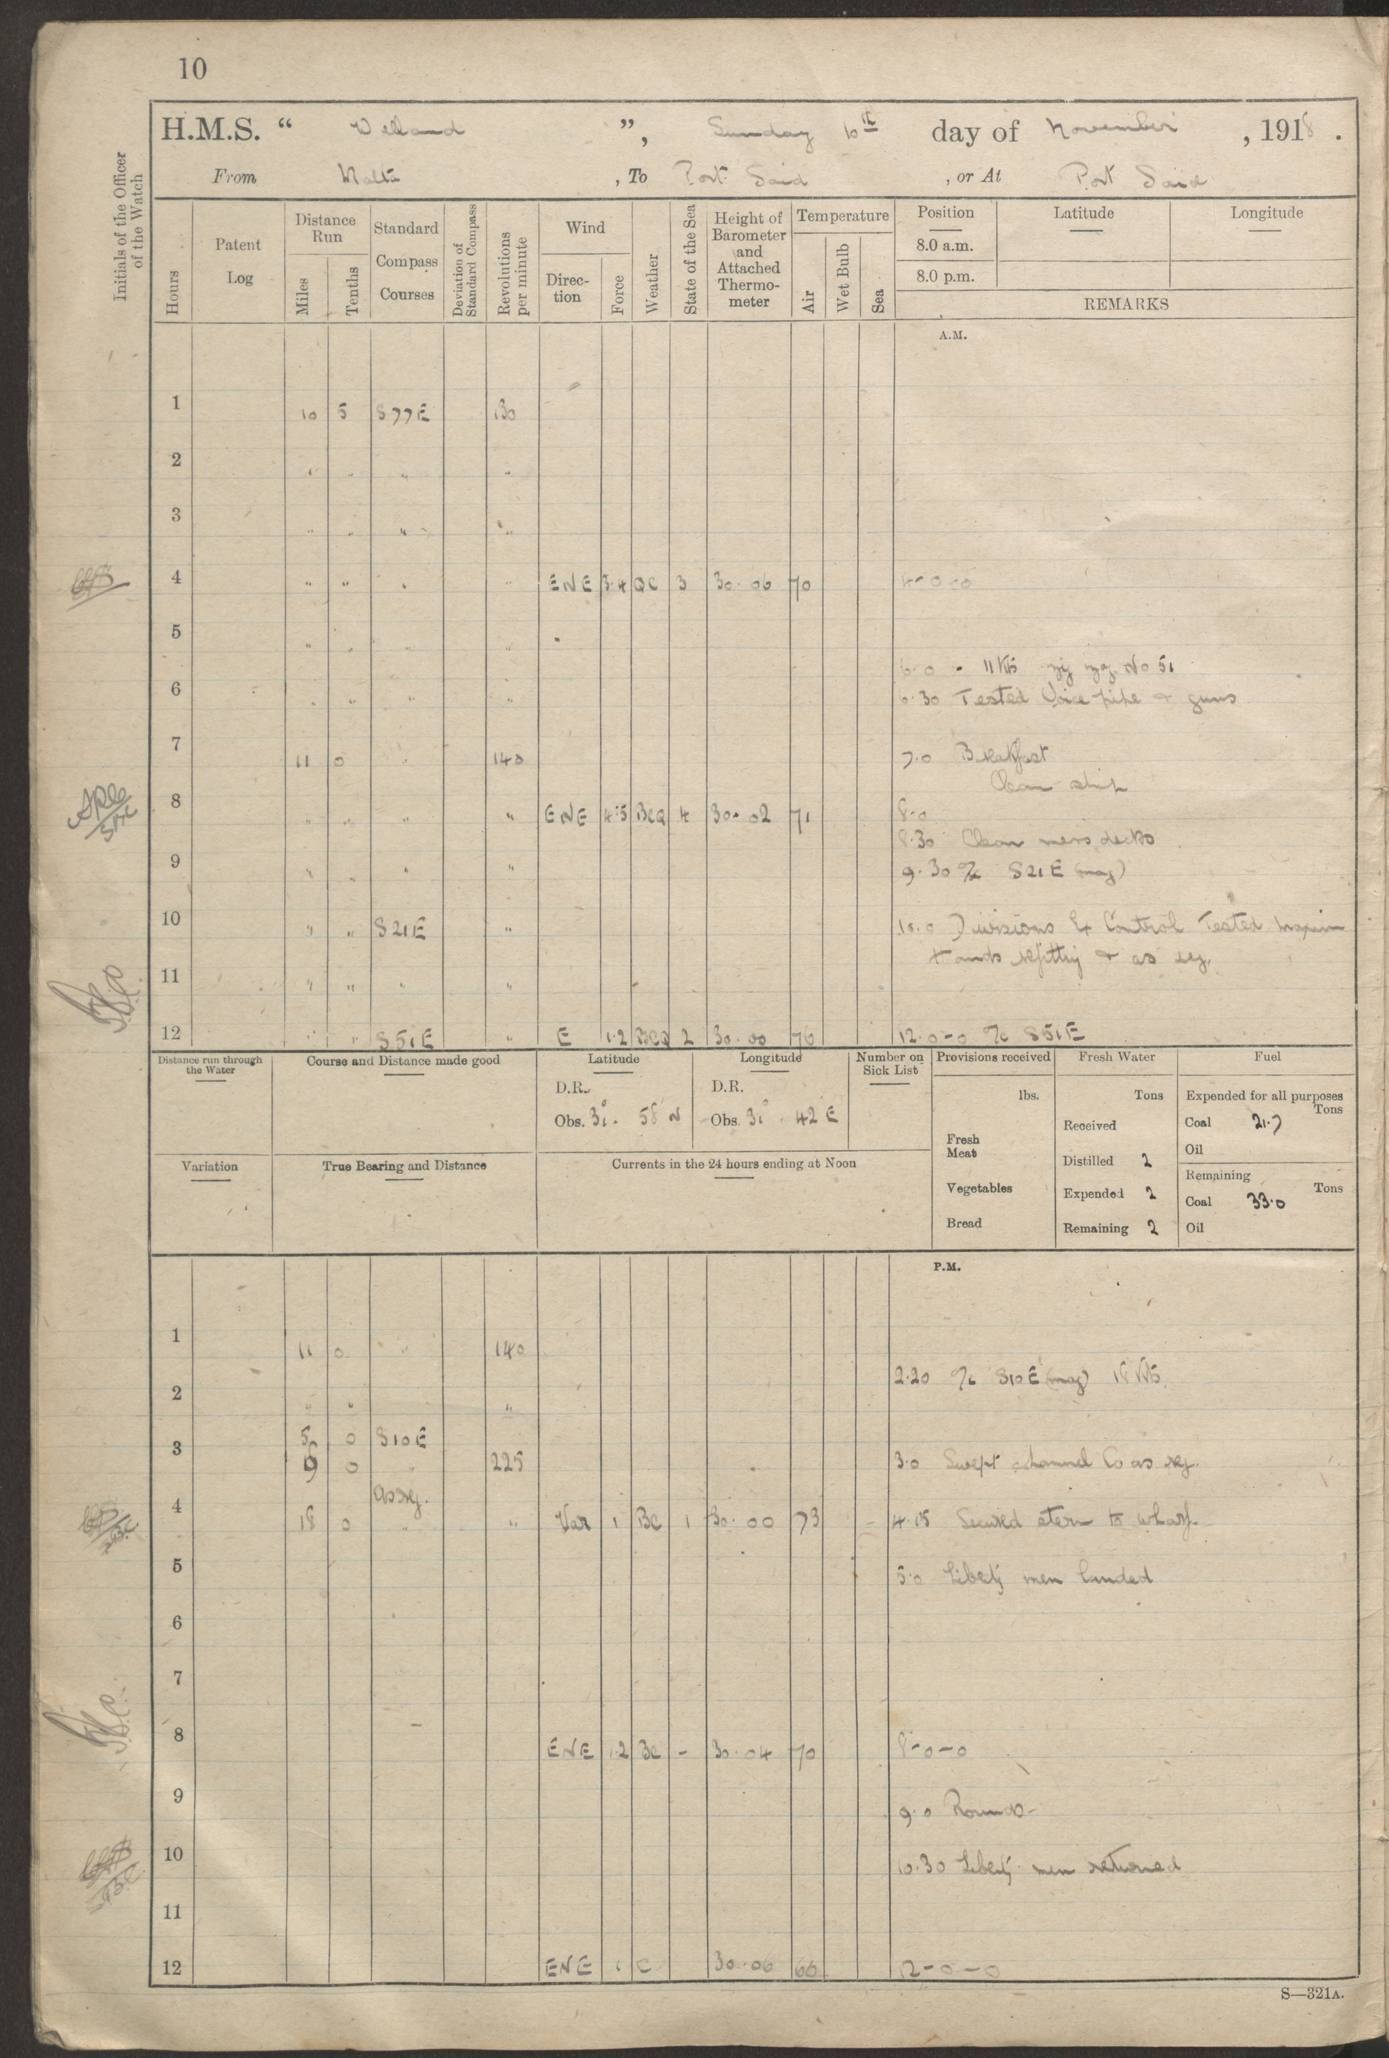 10
H.M.S. “ Welland ”, Sunday 10th day of November, 1918.
From Malta, To Port Said, or At Port Said
Initials of the Officer of the Watch
Hours
Patent Log
Distance Run
Miles
Tenths
Standard Compass Courses
Deviation of Standard Compass
Revolutions per minute
Wind
Direction
Force
Weather
State of the Sea
Height of Barometer and Attached Thermometer
Temperature
Air
Wet Bulb
Sea
Position Latitude Longitude
8.0 a.m.
8.0 p.m.
REMARKS
A.M.
1 10 5 S77E 130
2 " " " "
3 " " " "
4 " " " " ENE 3.4 BC 3 30.06 70 4-0-0
5 " " " "
6.0 - 11 Kts zig zag No 51
6 " " " "
6.30 Tested Voice pipe & guns
7 11 0 " 140 7.0 Breakfast
Clean ship
8 " " " " ENE 4.5 BCQ 4 30.02 71 8-0
8.30 Clean mess decks
9 " " " " 9.30 A/c S21E (mag)
10 " " S21E " 10.0 Divisions Control Tested
hands refitting & as req.
11 " " " "
12 " " S51E " E 1.2 BCQ 2 30.00 76 12-0-0 A/c S51E
Distance run through the Water
Course and Distance made good
Latitude
D.R.
Obs. 31° 58 N
Longitude
D.R.
Obs. 31° 42 E
Number on Sick List
Provisions received
lbs.
Fresh Meat
Vegetables
Bread
Fresh Water
Tons
Received
Distilled 2
Expended 2
Remaining 2
Fuel
Expended for all purposes
Tons
Coal 21.7
Oil
Remaining
Tons
Coal 33.0
Oil
Variation
True Bearing and Distance
Currents in the 24 hours ending at Noon
P.M.
1 11 0 " 140
2.20 A/c S10E (mag) 18 Kts
2 " " "
5 0 S10E
3 9 0 " 225 3.0 Swept channel Co as req.
as req.
4 18 0 " " Var 1 BC 1 30.00 73 4.15 Secured stern to wharf
5 5.0 Liberty men landed
6
7
8 ENE 1.2 BC - 30.04 70 8-0-0
9 9.0 Rounds
10 10.30 Liberty men returned
11
12 ENE 1 C 30.06 66 12-0-0
S—321A.